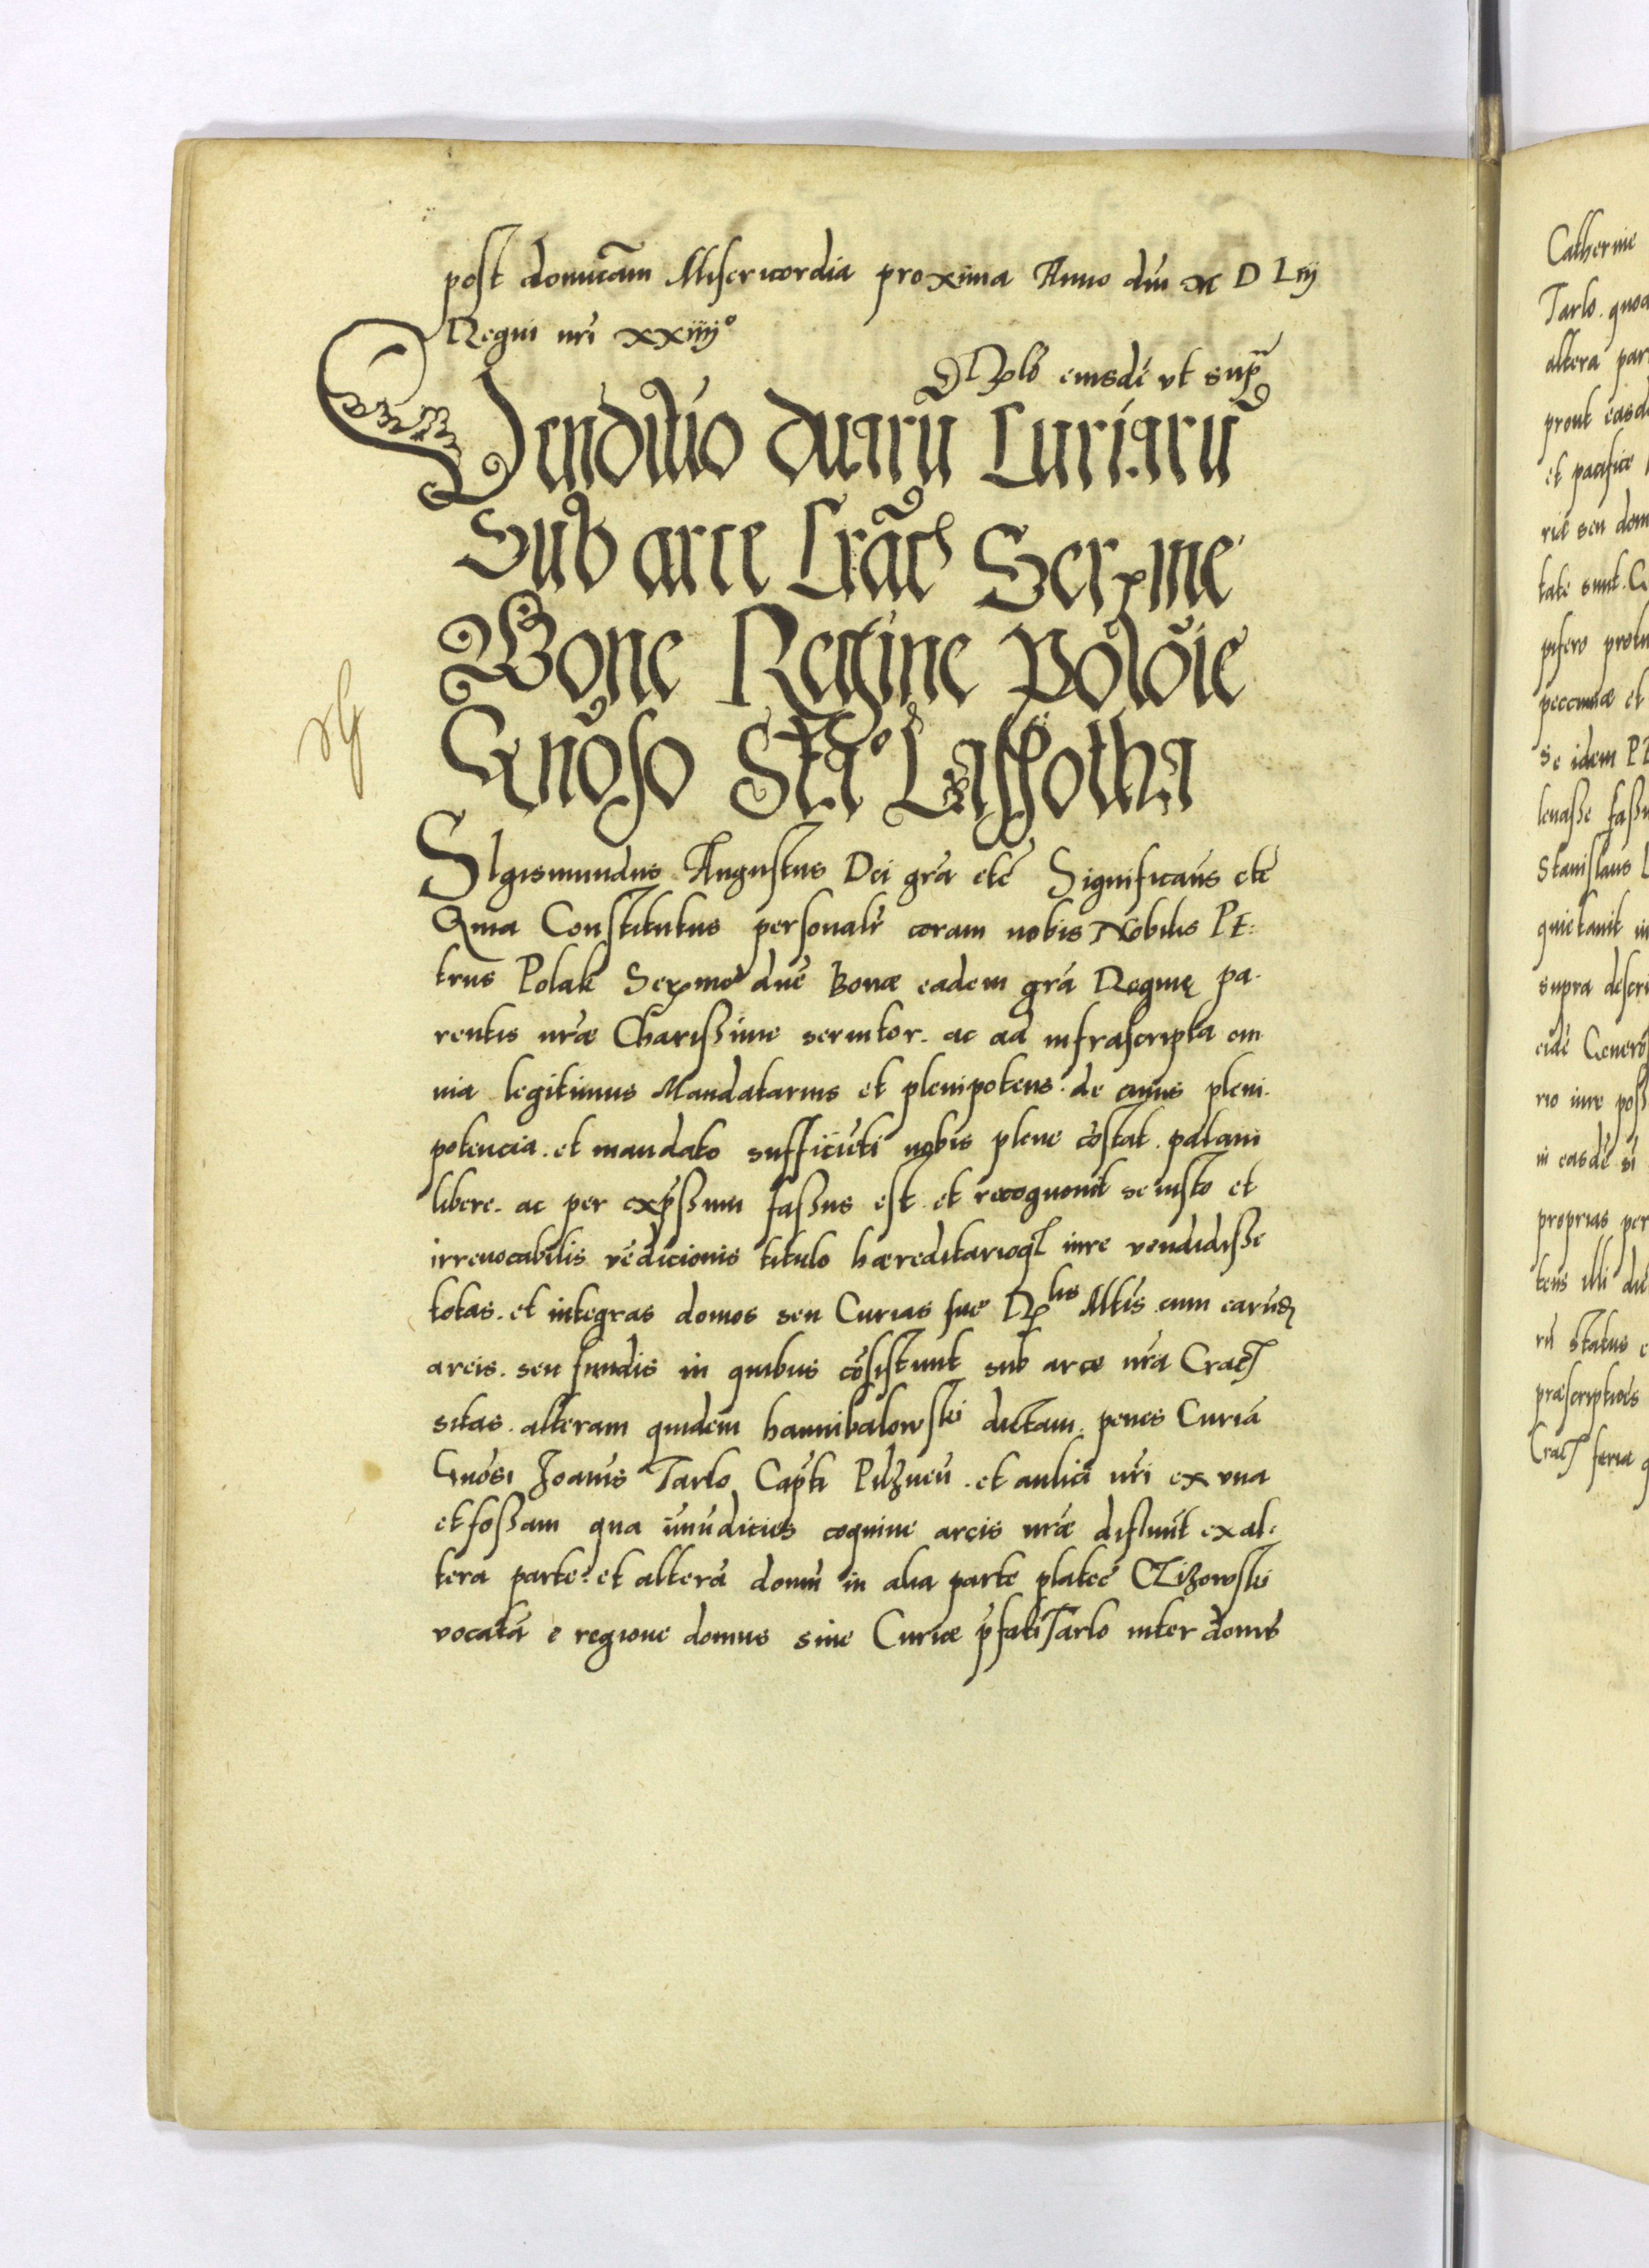 post domicam Misericordia proxima Anno dni M D Liij
Regni nri xxiiij°
eiusde vt supra
Venditio duarū Curiarū
Sub arce Cräc Serme
Bone Regine Poloie
Gnoso Sta° Lassotha
SIgismundus Augustus Dei gra etc Significans etc
Quia Constitutus personalr coram nobis Nobilis PE:
trus Polak Serme dne Bonæ eadem gra Reginę pa.
rentis nræ Charissime seruitor. ac ad infrascripta om
nia legitimus Mandatarius et plenipotens. de cuius pleni.
potencia. et mandato sufficieti nobis plene costat. palam
libere. ac per expssum fassus est. et recognouit se iusto et
irreuocabilis vedicionis titulo hæreditarioq iure vendidisse
totas. et integras domos seu Curias sue Rlis Mtis cum earud
areis. seu fundis in quibus cosistunt sub arce nra Crac
sitas. alteram quidem hannibalowski dictam. penes Curia
Gnosi Joanis Tarlo Capti Pilzneu. et aulici nri ex vna
et fossam qua imudicies coquine arcis nræ difluut ex al:
tera parte: et altera domu in alia parte platee CZizowski
vocata e regione domus siue Curiæ pfati Tarlo inter domu
Catherine
Tarlo. quoa
altera par
prout easde
et pacifice
rie seu dom
tate sunt. C
pifero
peccuniæ et
Se idem PE
leuasse fassu
Stanislaus L
quietauit in
supra descri
eide Generos
rio iure poss
in easde si
proprias per
tens illi du
ru status e
præscriptioes
Crac feria q